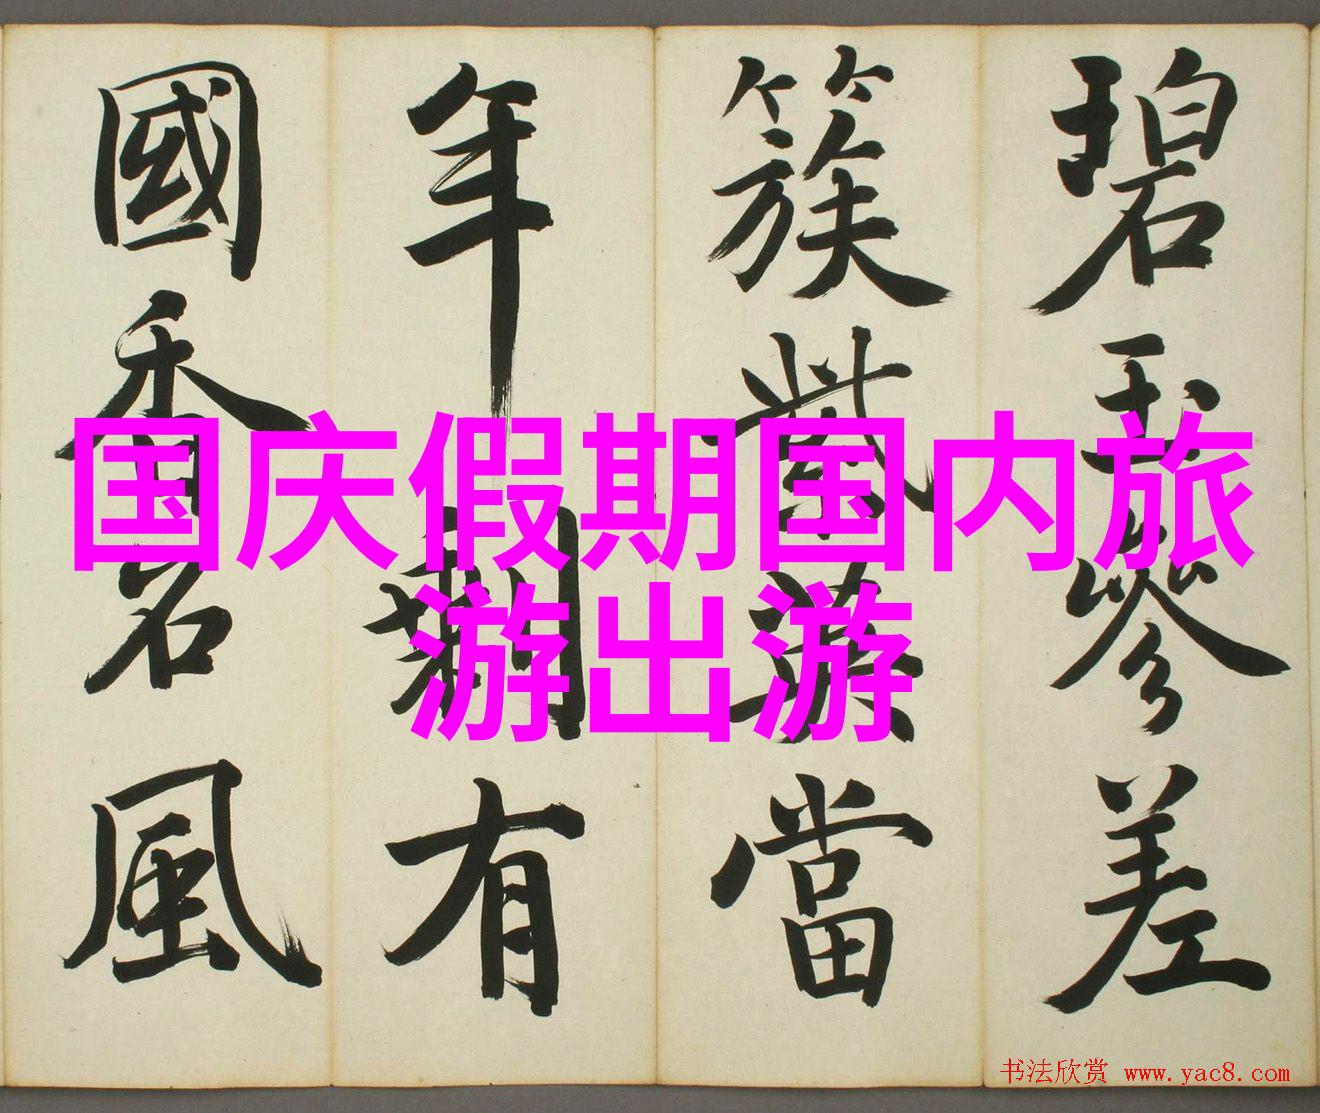 碧玉參差
簇紫英當
年剩有
國香名風
国庆假期国内旅
游出游
书法欣赏 www.yac8.com